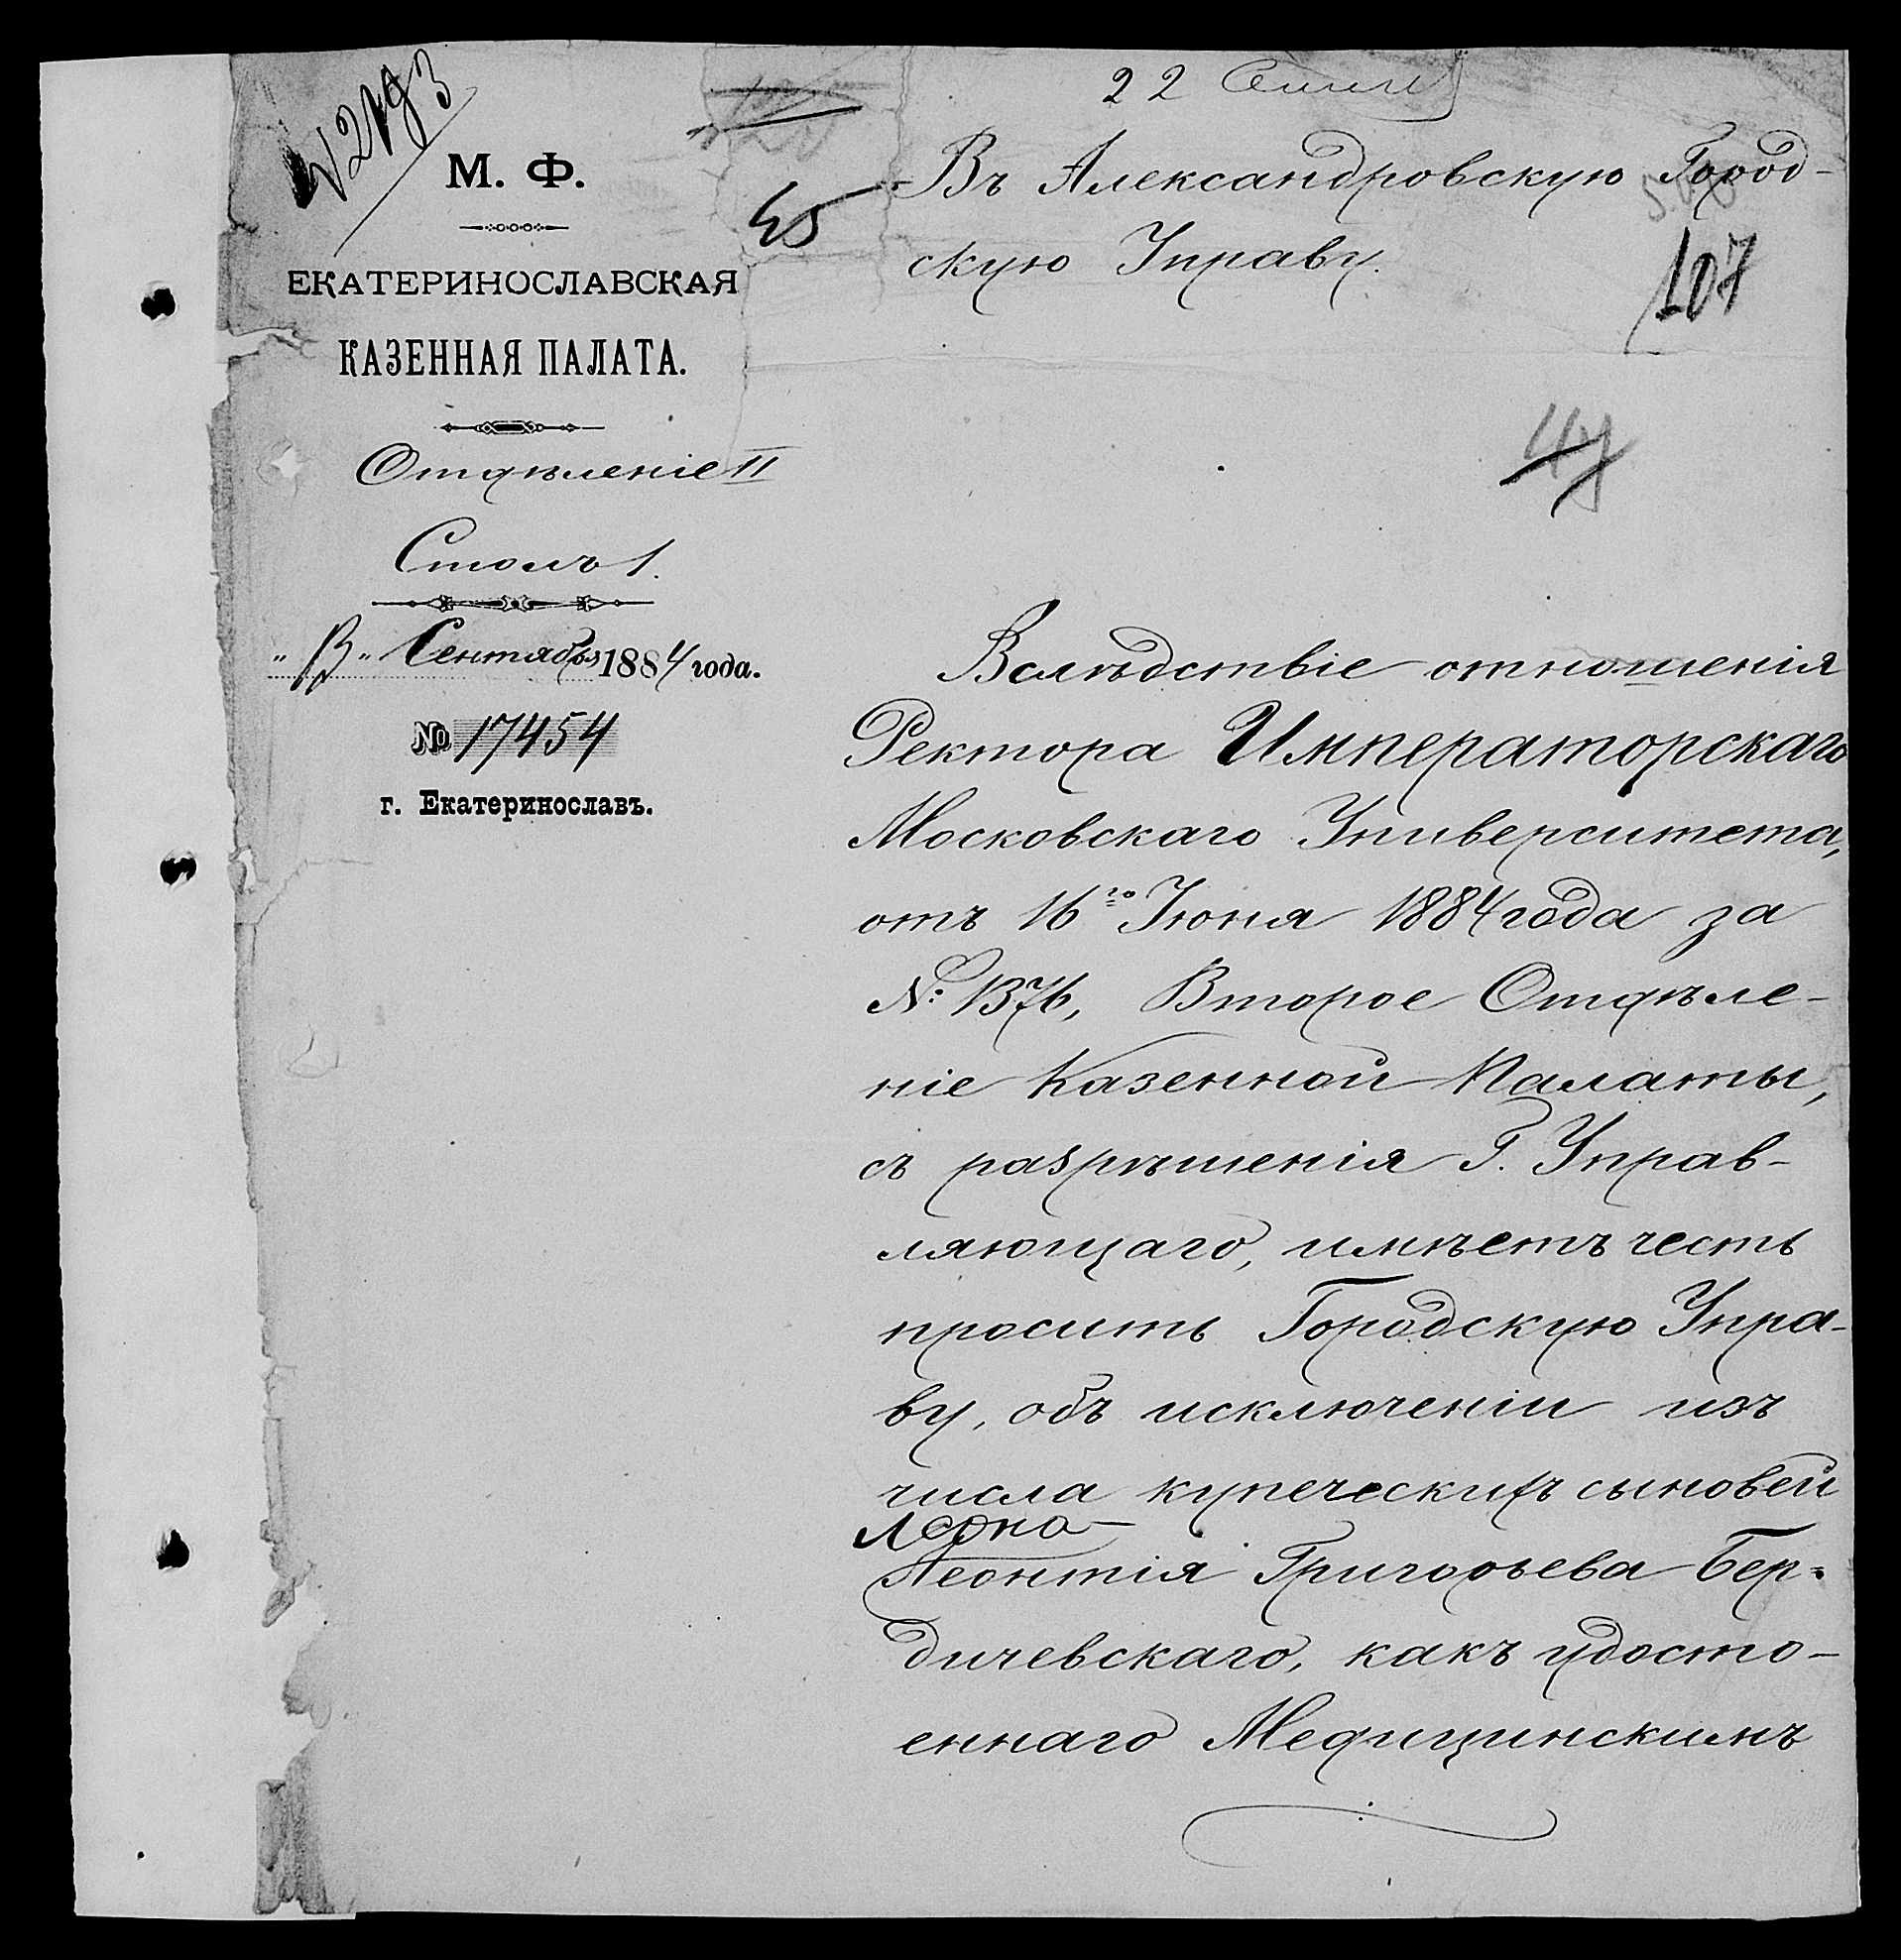 22 Сент
М. Ф.
ЕКАТЕРИНОСЛАВСКАЯ
КАЗЕННАЯ ПАЛАТА.
Отдѣленіе II
Столъ 1.
"13" Сентября 1884 года.
№ 17454
г. Екатеринославъ.
45
107
Въ Александровскую Город-
скую Управу.
Вслѣдствіе отношенія
Ректора Императорскаго
Московскаго Университета,
отъ 16го Іюня 1884 года за
№ 1376, Второе Отдѣле-
ніе Казенной Палаты,
съ разрѣшенія Г. Управ-
ляющаго, имѣетъ честь
просить Городскую Упра-
ву, объ исключеніи изъ
числа купеческихъ сыновей
Леона
Леонтія Григорьева Бер-
дичевскаго, какъ удосто-
еннаго Медицинскимъ